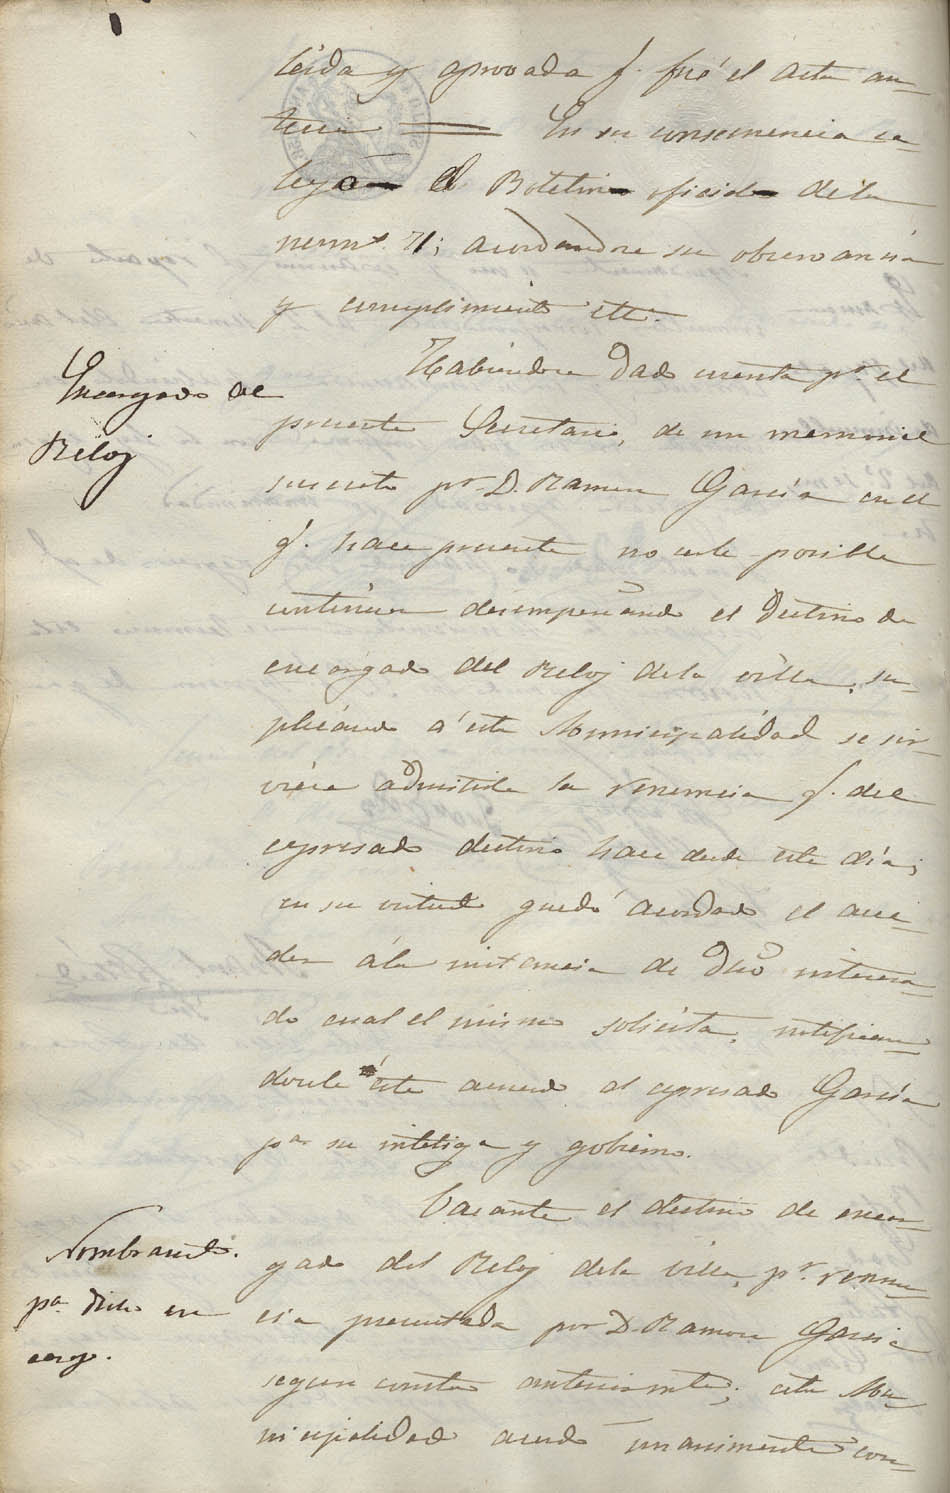 leida y aprovada q. fué el acta an-
terior En su consecuencia se
leyó el Boletin oficial dela
nerm.t 71; acordandose su observancia
y cumplimiento ett.ª
Encargado del
Reloj
Habiendose dado cuenta p.r el
presente Secretario, de un memorial
suscrito p.r D. Ramon García en el
q. hace presente no serle posible
continuar desempeñando el destino de
encargado del Reloj dela villa, su-
plicando á esta Municipalidad se sir-
viera admitirle la renuncia q. del
espresado destino hace desde este día;
en su virtud quedó acordado el acce-
der ála instancia de dho interesa-
do cual el mismo solicita, notifican-
dosele éste acuerdo al espresado García
p.a su inteliga y gobierno.
Nombramto.
pa. dicho en
cargo.
Vacante el destino de encar-
gado del Reloj dela villa, p.r renun-
cia presentada por D. Ramon Garcia
segun consta anteriormte.; esta Mu-
nicipalidad acordó unanimente con-